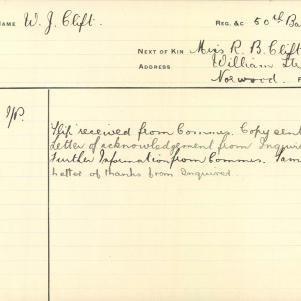 NAME W. J. Clift. REG. &C 50th Ba
NEXT OF KIN Miss R. B. Clift
ADDRESS William St
Norwood.
I/P.
Slip received from Commrs. Copy sent
Letter of acknowledgement from Inquir
Further Information from Commrs.
Letter of thanks from Enquirer.